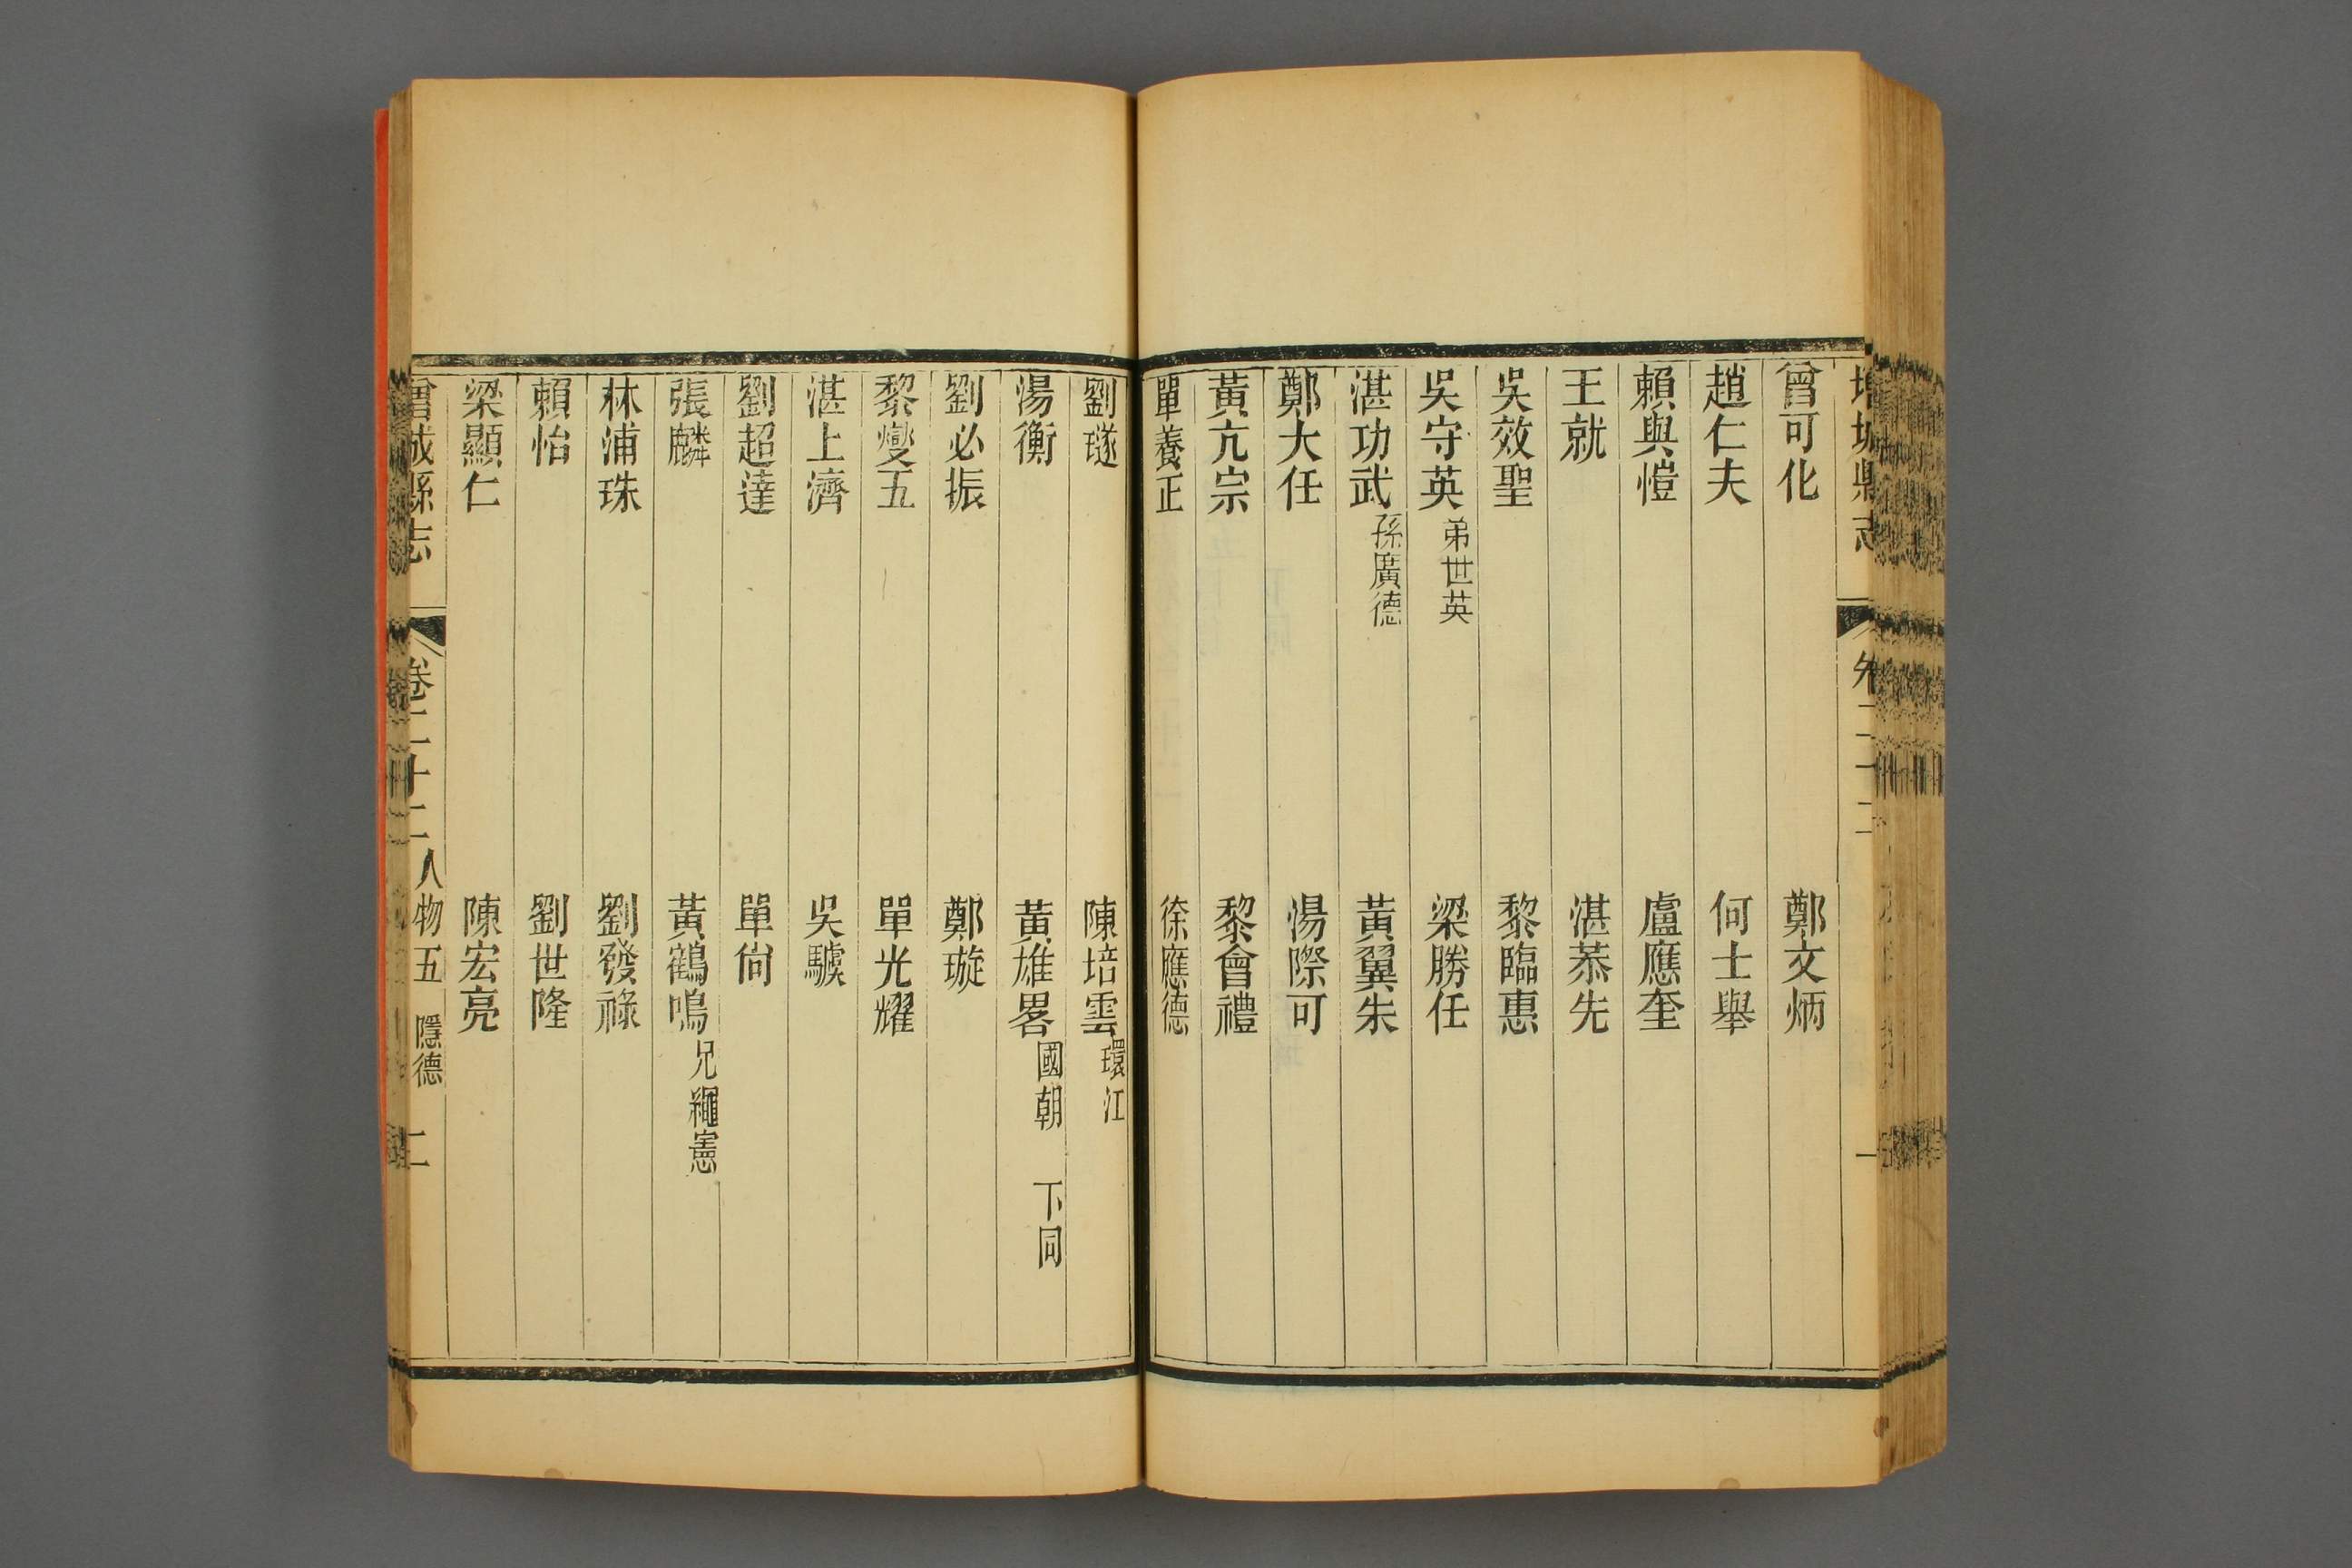 增城縣志
卷二十二
一
曾可化　鄭文炳
趙仁夫　何士舉
賴與愷　盧應奎
王就　湛恭先
吳效聖　黎臨惠
吳守英弟世英　梁勝任
湛功武孫廣德　黃翼朱
鄭大任　湯際可
黃亢宗　黎會禮
單養正　徐應德
劉璲　陳培雲環江
湯衡　黃雄畧國朝　下同
劉必振　鄭璇
黎燮五　單光耀
湛上濟　吳驥
劉超達　單尙
張麟　黃鶴鳴兄繩憲
林浦珠　劉發祿
賴怡　劉世隆
梁顯仁　陳宏亮
增城縣志　卷二十二　人物五　隱德　二